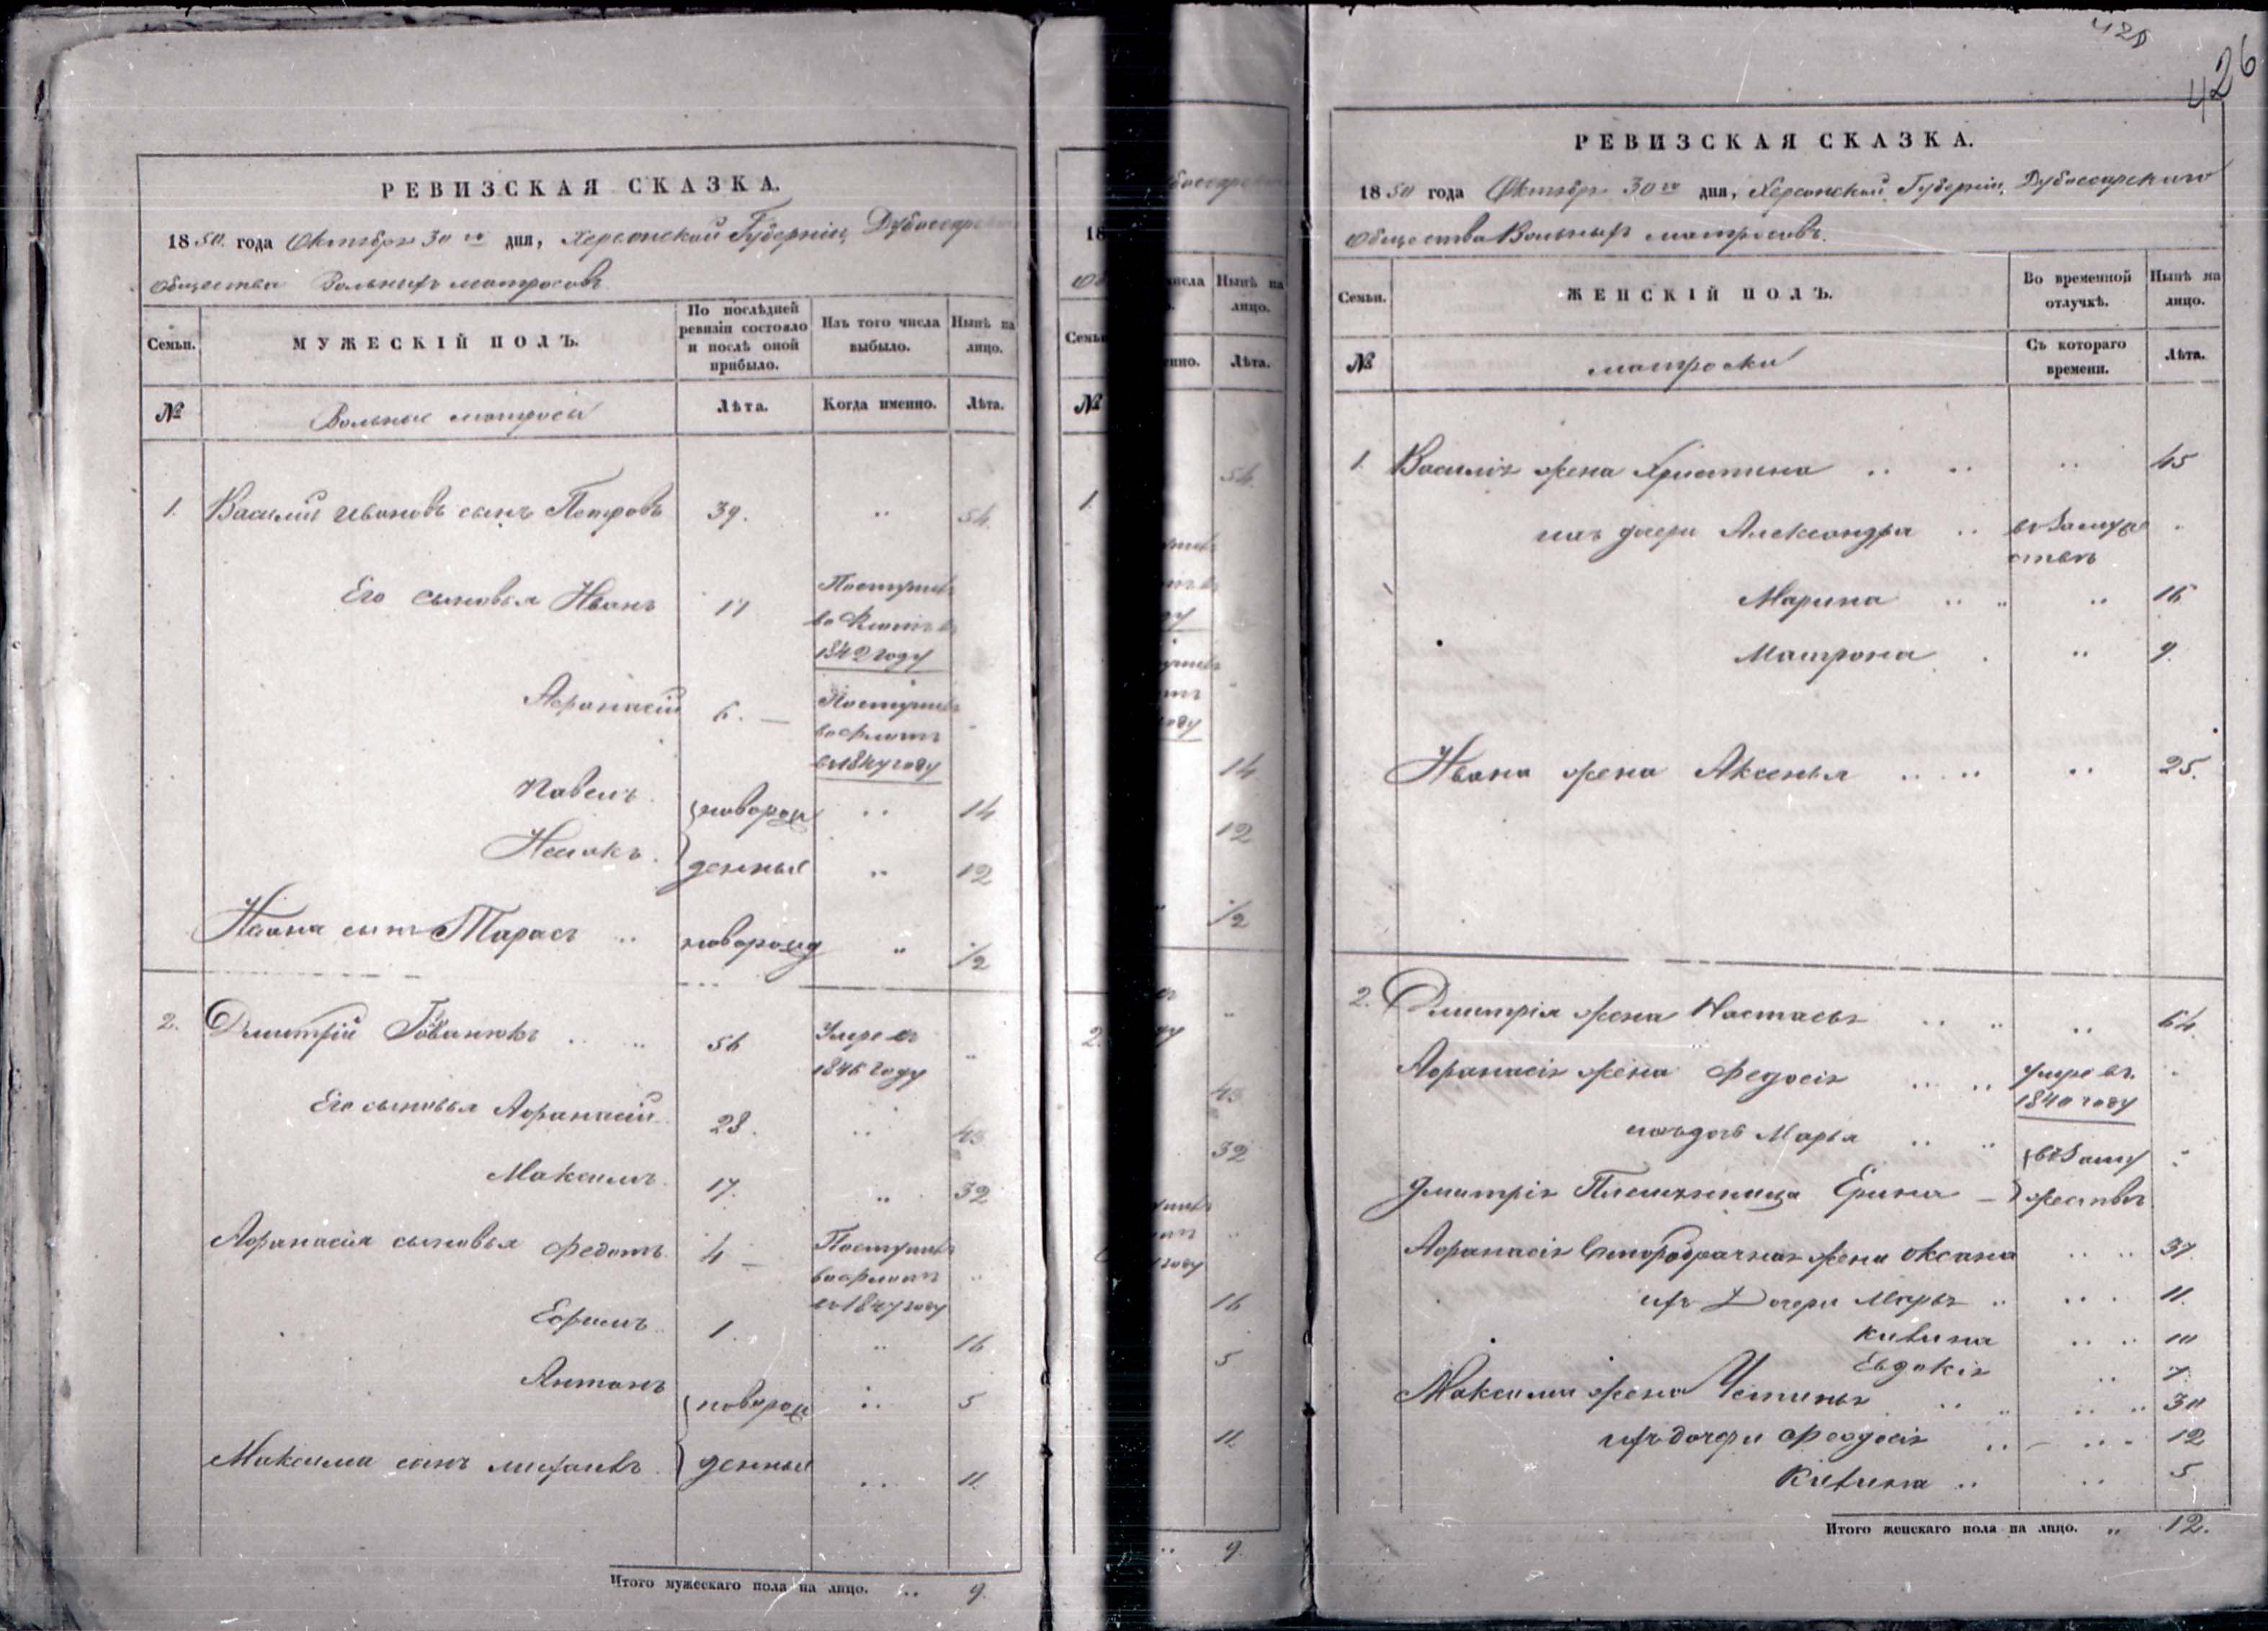 РЕВИЗСКАЯ СКАЗКА.
1850 года Октября 30го дня, Херсонской Губерніи, Дубоссарскаго
общества Вольныхъ матросовъ
Семьи.
МУЖЕСКІЙ ПОЛЪ.
По послѣдней ревизіи состояло и послѣ оной прибыло.
Изъ того числа выбыло.
Нынѣ на лицо.
№
Вольные матросы
Лѣта.
Когда именно.
Лѣта.
1. Василий Ивановъ сынъ Петровъ 39. " 54.
Его сыновья Иванъ 17 Поступилъ
во Флотъ въ
1842 году
Афанасій 6. — Поступилъ
во Флотъ
въ 1847 году
Павелъ. новорож " 14
Исаакъ. денные " 12
Ивана сынъ Тарасъ " новорожд " 1/2
2. Дмитрій 56 Умре въ "
1846 году
Его сыновья Афанасій 28. " 43
Максимъ. 17. " 32
Афанасія сыновья Федотъ 4 — Поступилъ
во флотъ "
въ 1847 году
Ефимъ 1. " 16
Антонъ новорож " 5
Максима сынъ михаилъ денные " 11.
Итого мужескаго пола на лицо. " 9.
18
Семьи
№
1.
2.
числа
Нынѣ на лицо.
Лѣта.
54.
14
12
1/2
43
32
16
5
11.
" 9.
426
РЕВИЗСКАЯ СКАЗКА.
1850 года Октября 30го дня, Херсонской Губерніи, Дубоссарскаго
общества Вольныхъ матросовъ.
Семьи.
ЖЕНСКІЙ ПОЛЪ.
Во временной отлучкѣ.
Нынѣ на лицо.
№
матроски
Съ котораго времени.
Лѣта.
1. Василія жена Христина " " " 45
ихъ дочери Александра " въ Замуже "
ствѣ
Марина " " " 16
Матрона " 9.
Ивана жена Аксенья " " " 25.
2. Дмитрія жена Настасья " " " 64.
Афанасія жена Федосія " " умре въ "
1840 году
ихъ дочь Марья " " въ Заму "
Дмитрія Племянница Ерина — жествѣ
Афанасія второбрачная жена Оксана " " 37.
ихъ Дочери Марья " " " 11.
Килина " " 10
Евдокія " 7.
Максима жена Устинья " " " " 30
ихъ дочери Феодосія " — " " 12
Килина " " 5
Итого женскаго пола на лицо. " 12.